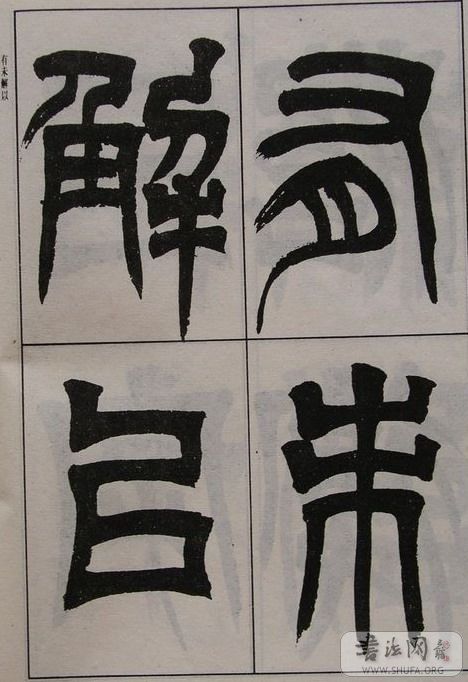 有未
解㠯
有未解以
书法网
WWW.SHUFA.ORG